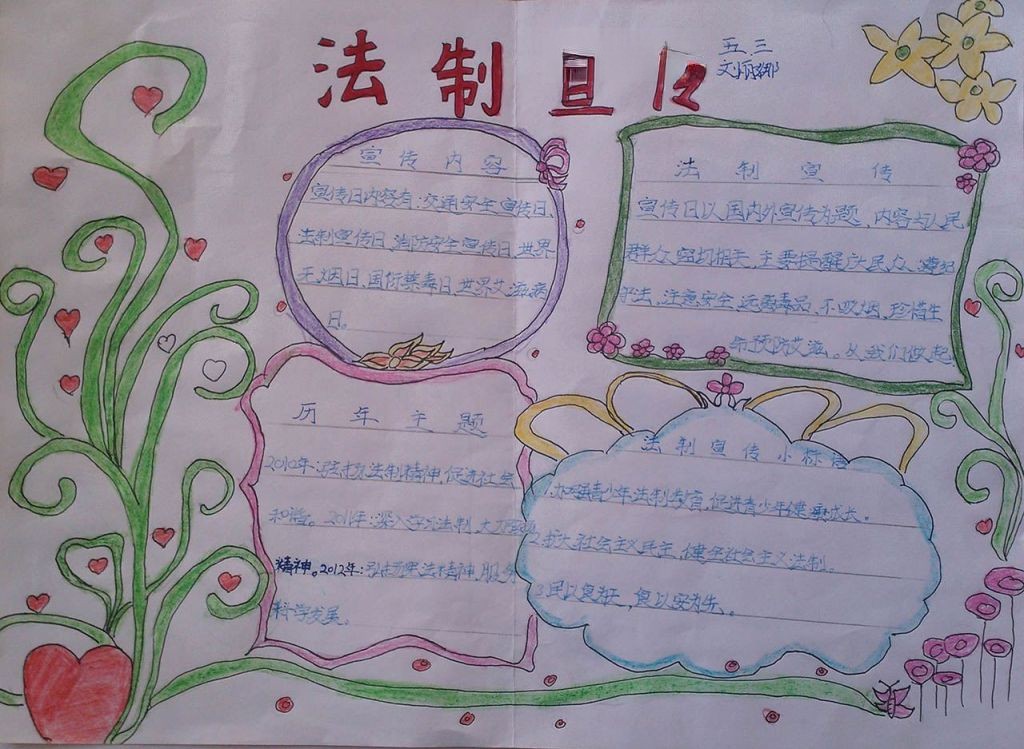 法制宣
五.三
刘丽娜
宣传内容
宣传日内容有:交通安全宣传日、
法制宣传日、消防安全宣传日、世界
无烟日、国际禁毒日、世界艾滋病
日。
法制宣传
宣传日以国内外宣传为题、内容与人民
群众密切相关,主要提醒广大民众、遵纪
守法,注意安全,远离毒品,不吸烟,珍惜生
命预防艾滋。从我们做起
历年主题
2010年:弘扬法制精神,促进社会
和谐。2011年:深入学习法制,大力
精神。2012年:弘扬宪法精神,服务
科学发展。
法制宣传小标语
1.加强青少年法制教育,促进青少年健康成长。
2.扩大社会主义民主,健全社会主义法制。
3.民以食为天,食以安为先。